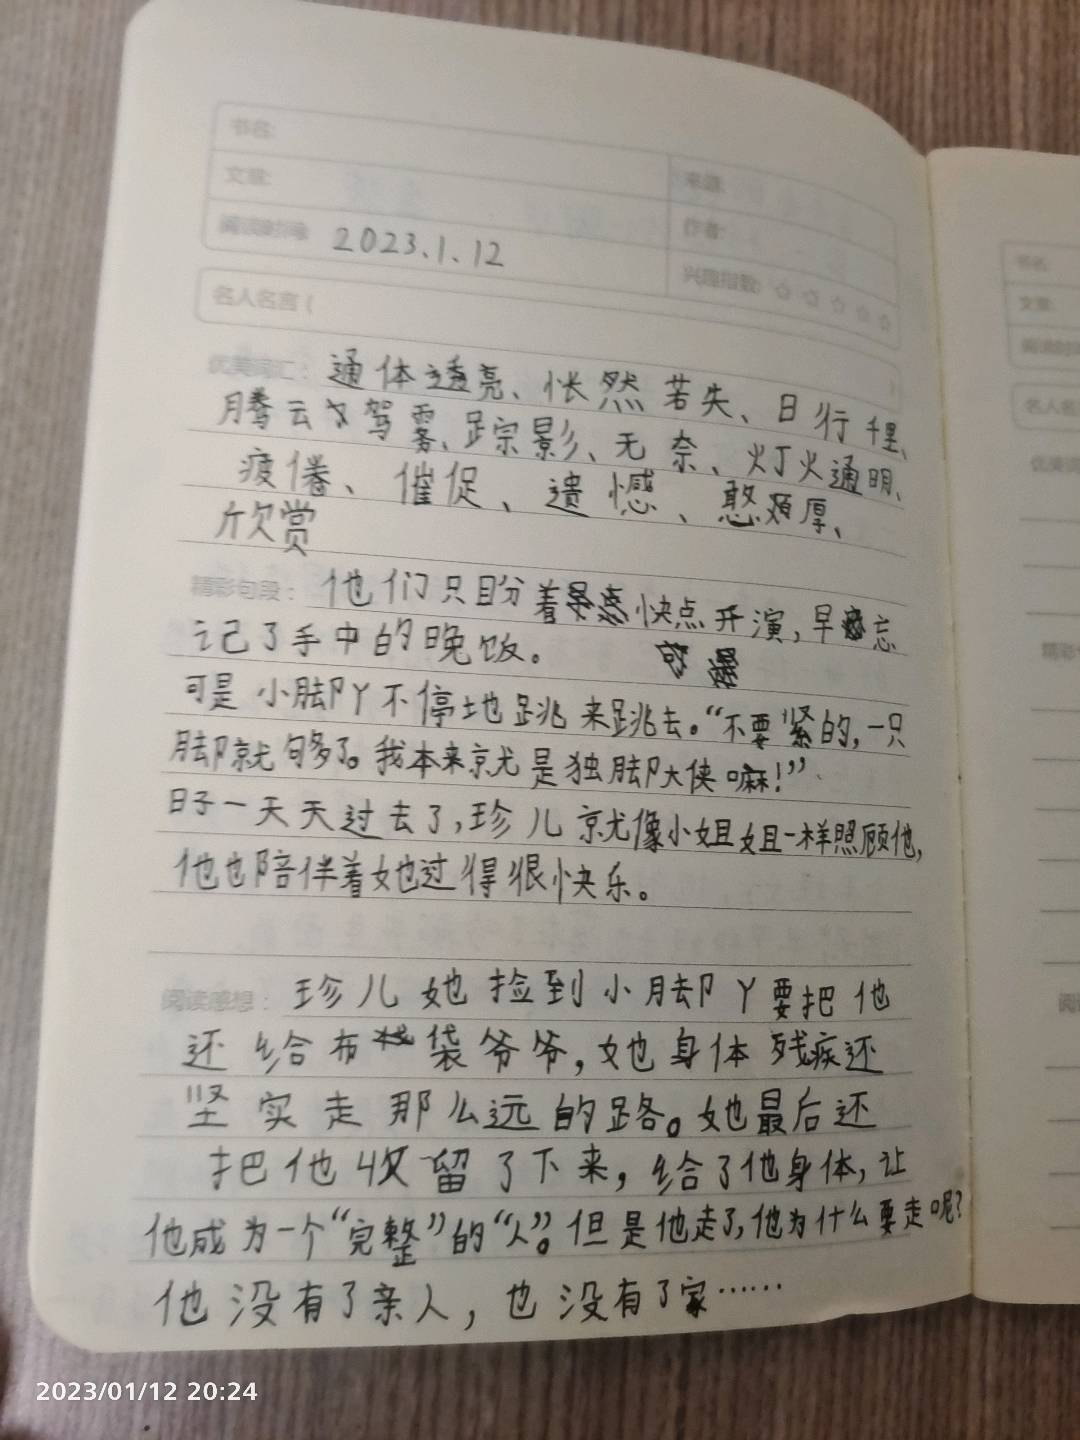 书名:
文章: 来源:
阅读时间: 2023.1.12 作者:
兴趣指数: ☆ ☆ ☆ ☆ ☆
名人名言 (
优美词汇: 通体透亮、怅然若失、日行千里、
腾云驾雾、踪影、无奈、灯火通明、
疲倦、催促、遗憾、憨厚、
欣赏
精彩句段: 他们只盼着快点开演,早忘
记了手中的晚饭。
可是小脚丫不停地跳来跳去。“不要紧的,一只
脚就够了。我本来就是独脚大侠嘛!”
日子一天天过去了,珍儿就像小姐姐一样照顾他,
他也陪伴着她过得很快乐。
阅读感想: 珍儿她捡到小脚丫要把他
还给布袋爷爷,她身体残疾还
坚实走那么远的路。她最后还
把他收留了下来,给了他身体,让
他成为一个“完整”的“人”。但是他走了,他为什么要走呢?
他没有了亲人,也没有了家……
书名:
文章:
阅读时间
名人名
2023/01/12 20:24